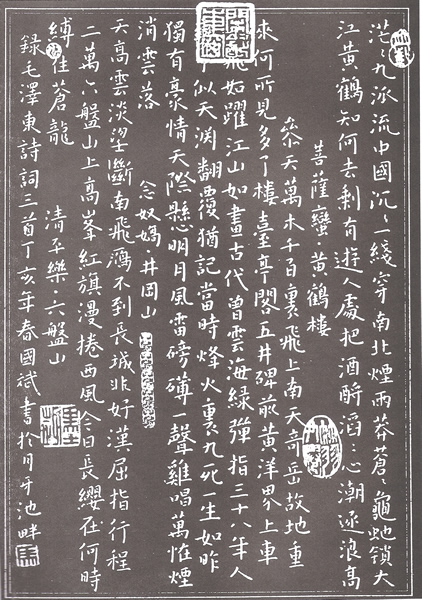 茫〻九派流中國沉〻一綫穿南北煙雨莽蒼〻龜虵锁大
江黃鶴知何去剩有遊人處把酒酹滔〻心潮逐浪高
菩薩蠻·黃鶴樓
叅天萬木千百裏飛上南天奇岳故地重
來何所見多了樓臺亭閣五井碑前黃洋界上車
飛如躍江山如畫古代曾雲海綠彈指三十八年人
似天渊翻覆猶記當時烽火裏九死一生如昨
獨有豪情天際懸明月風雷磅礴一聲雞唱萬怪煙
消雲落 念奴嬌井岡山
天高雲淡望斷南飛鴻不到長城非好漢屈指行程
二萬六盤山上高峯紅旗漫捲西風今日長纓在何時
縛住蒼龍 清平樂·六盤山
錄毛澤東詩詞三首丁亥年春國斌書於月牙池畔